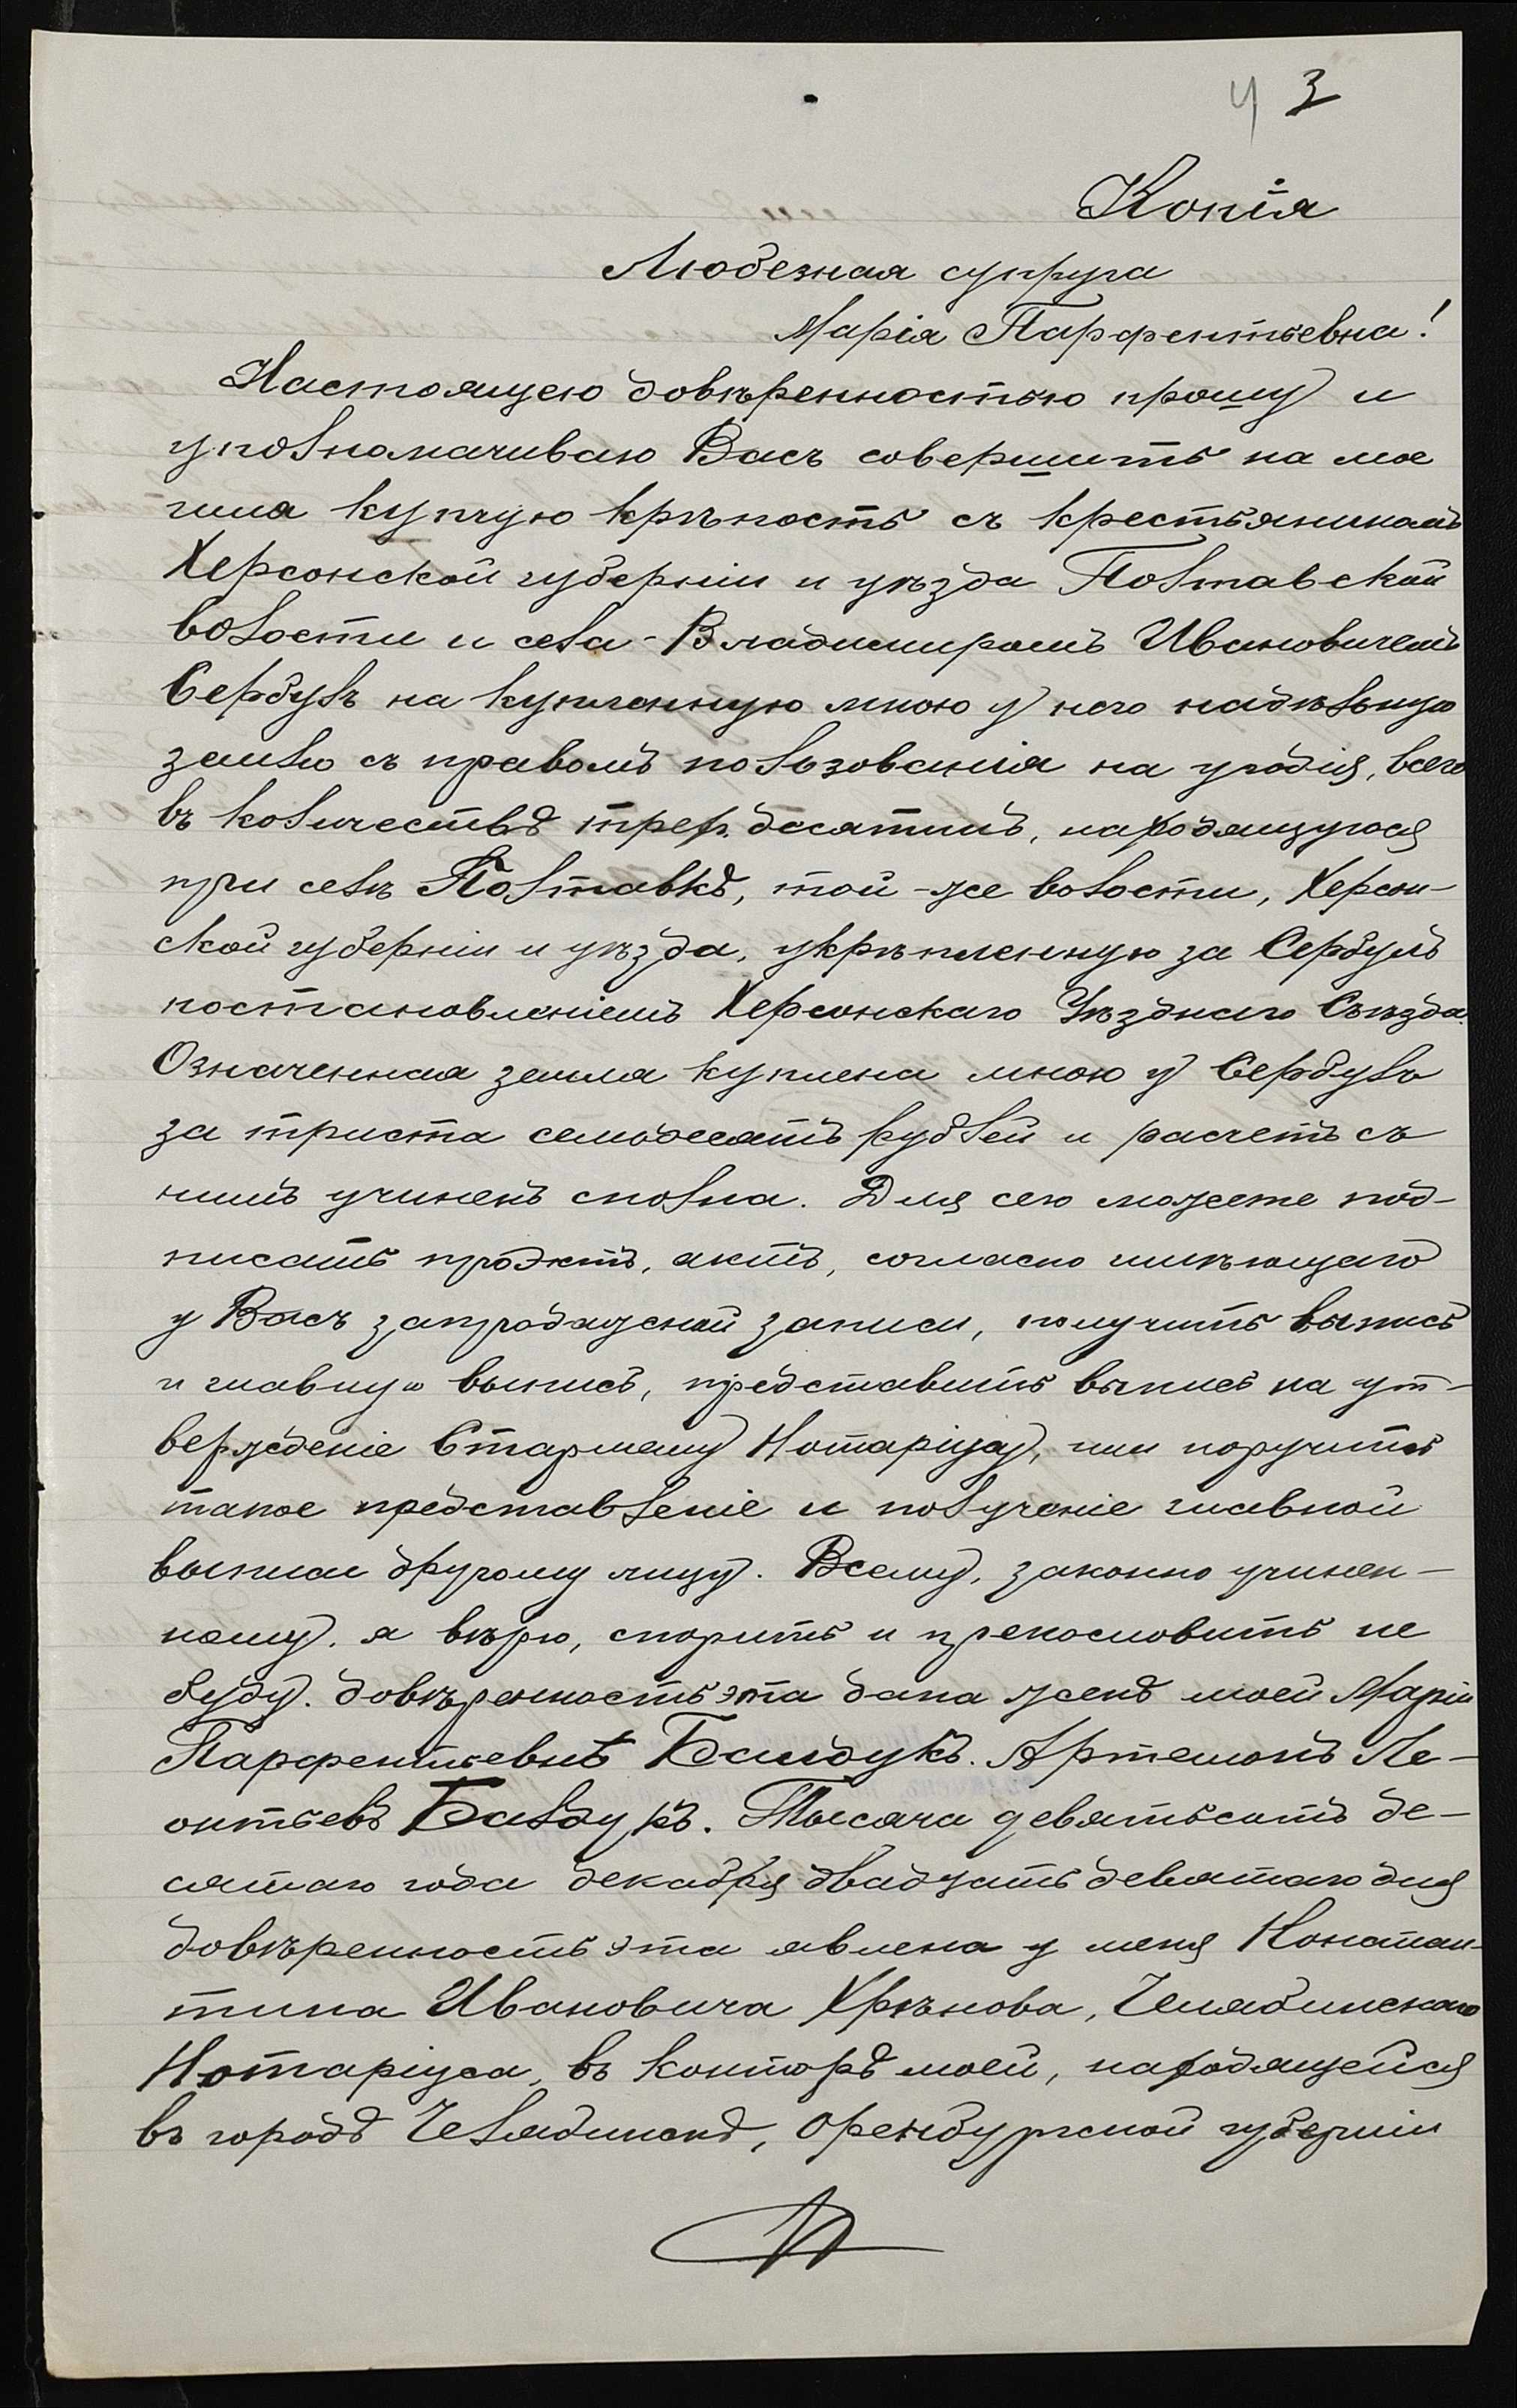 4 3
Копія
Любезная супруга
Марія Парфентьевна!
Настоящею довѣренностью прошу и
уполномачиваю Васъ совершить на мое
имя купчую крѣпость съ крестьяниномъ
Херсонской губерніи и уѣзда Полтавской
волости и села - Владимиромъ Ивановичемъ
Сербулъ на купленную мною у него надѣльную
землю съ правомъ пользованія на угодія, всего
въ количествѣ трех десятинъ, находящуюся
при селѣ Полтавкѣ, той-же волости, Херсон-
ской губерніи и уѣзда, укрѣпленную за Сербулъ
постановленіемъ Херсонскаго Уѣзднаго Съѣзда.
Означенная земля куплена мною у Сербулъ
за триста семьдесятъ рублей и расчетъ съ
нимъ учиненъ сполна. Для сего можете под-
писать проэктъ, актъ, согласно имѣющаго
у Васъ запродажной записи, получить выпись
и главную выпись, представить выпись на ут-
вержденіе Старшему Нотаріусу, или поручить
такое представленіе и полученіе главной
выписи другому лицу. Всему, законно учинен-
ному, я вѣрю, спорить и прекословить не
буду. Довѣренность эта дана женѣ моей Маріи
Парфентьевнѣ Балдукъ. Артемонъ Ле-
онтьевъ Балдукъ. Тысяча девятьсотъ де-
сятаго года декабря двадцать девятаго дня
довѣренность эта явлена у меня Констан-
тина Ивановича Хрѣнова, Челябинскаго
Нотаріуса, въ конторѣ моей, находящейся
въ городѣ Челябинскѣ, Оренбургской губерніи